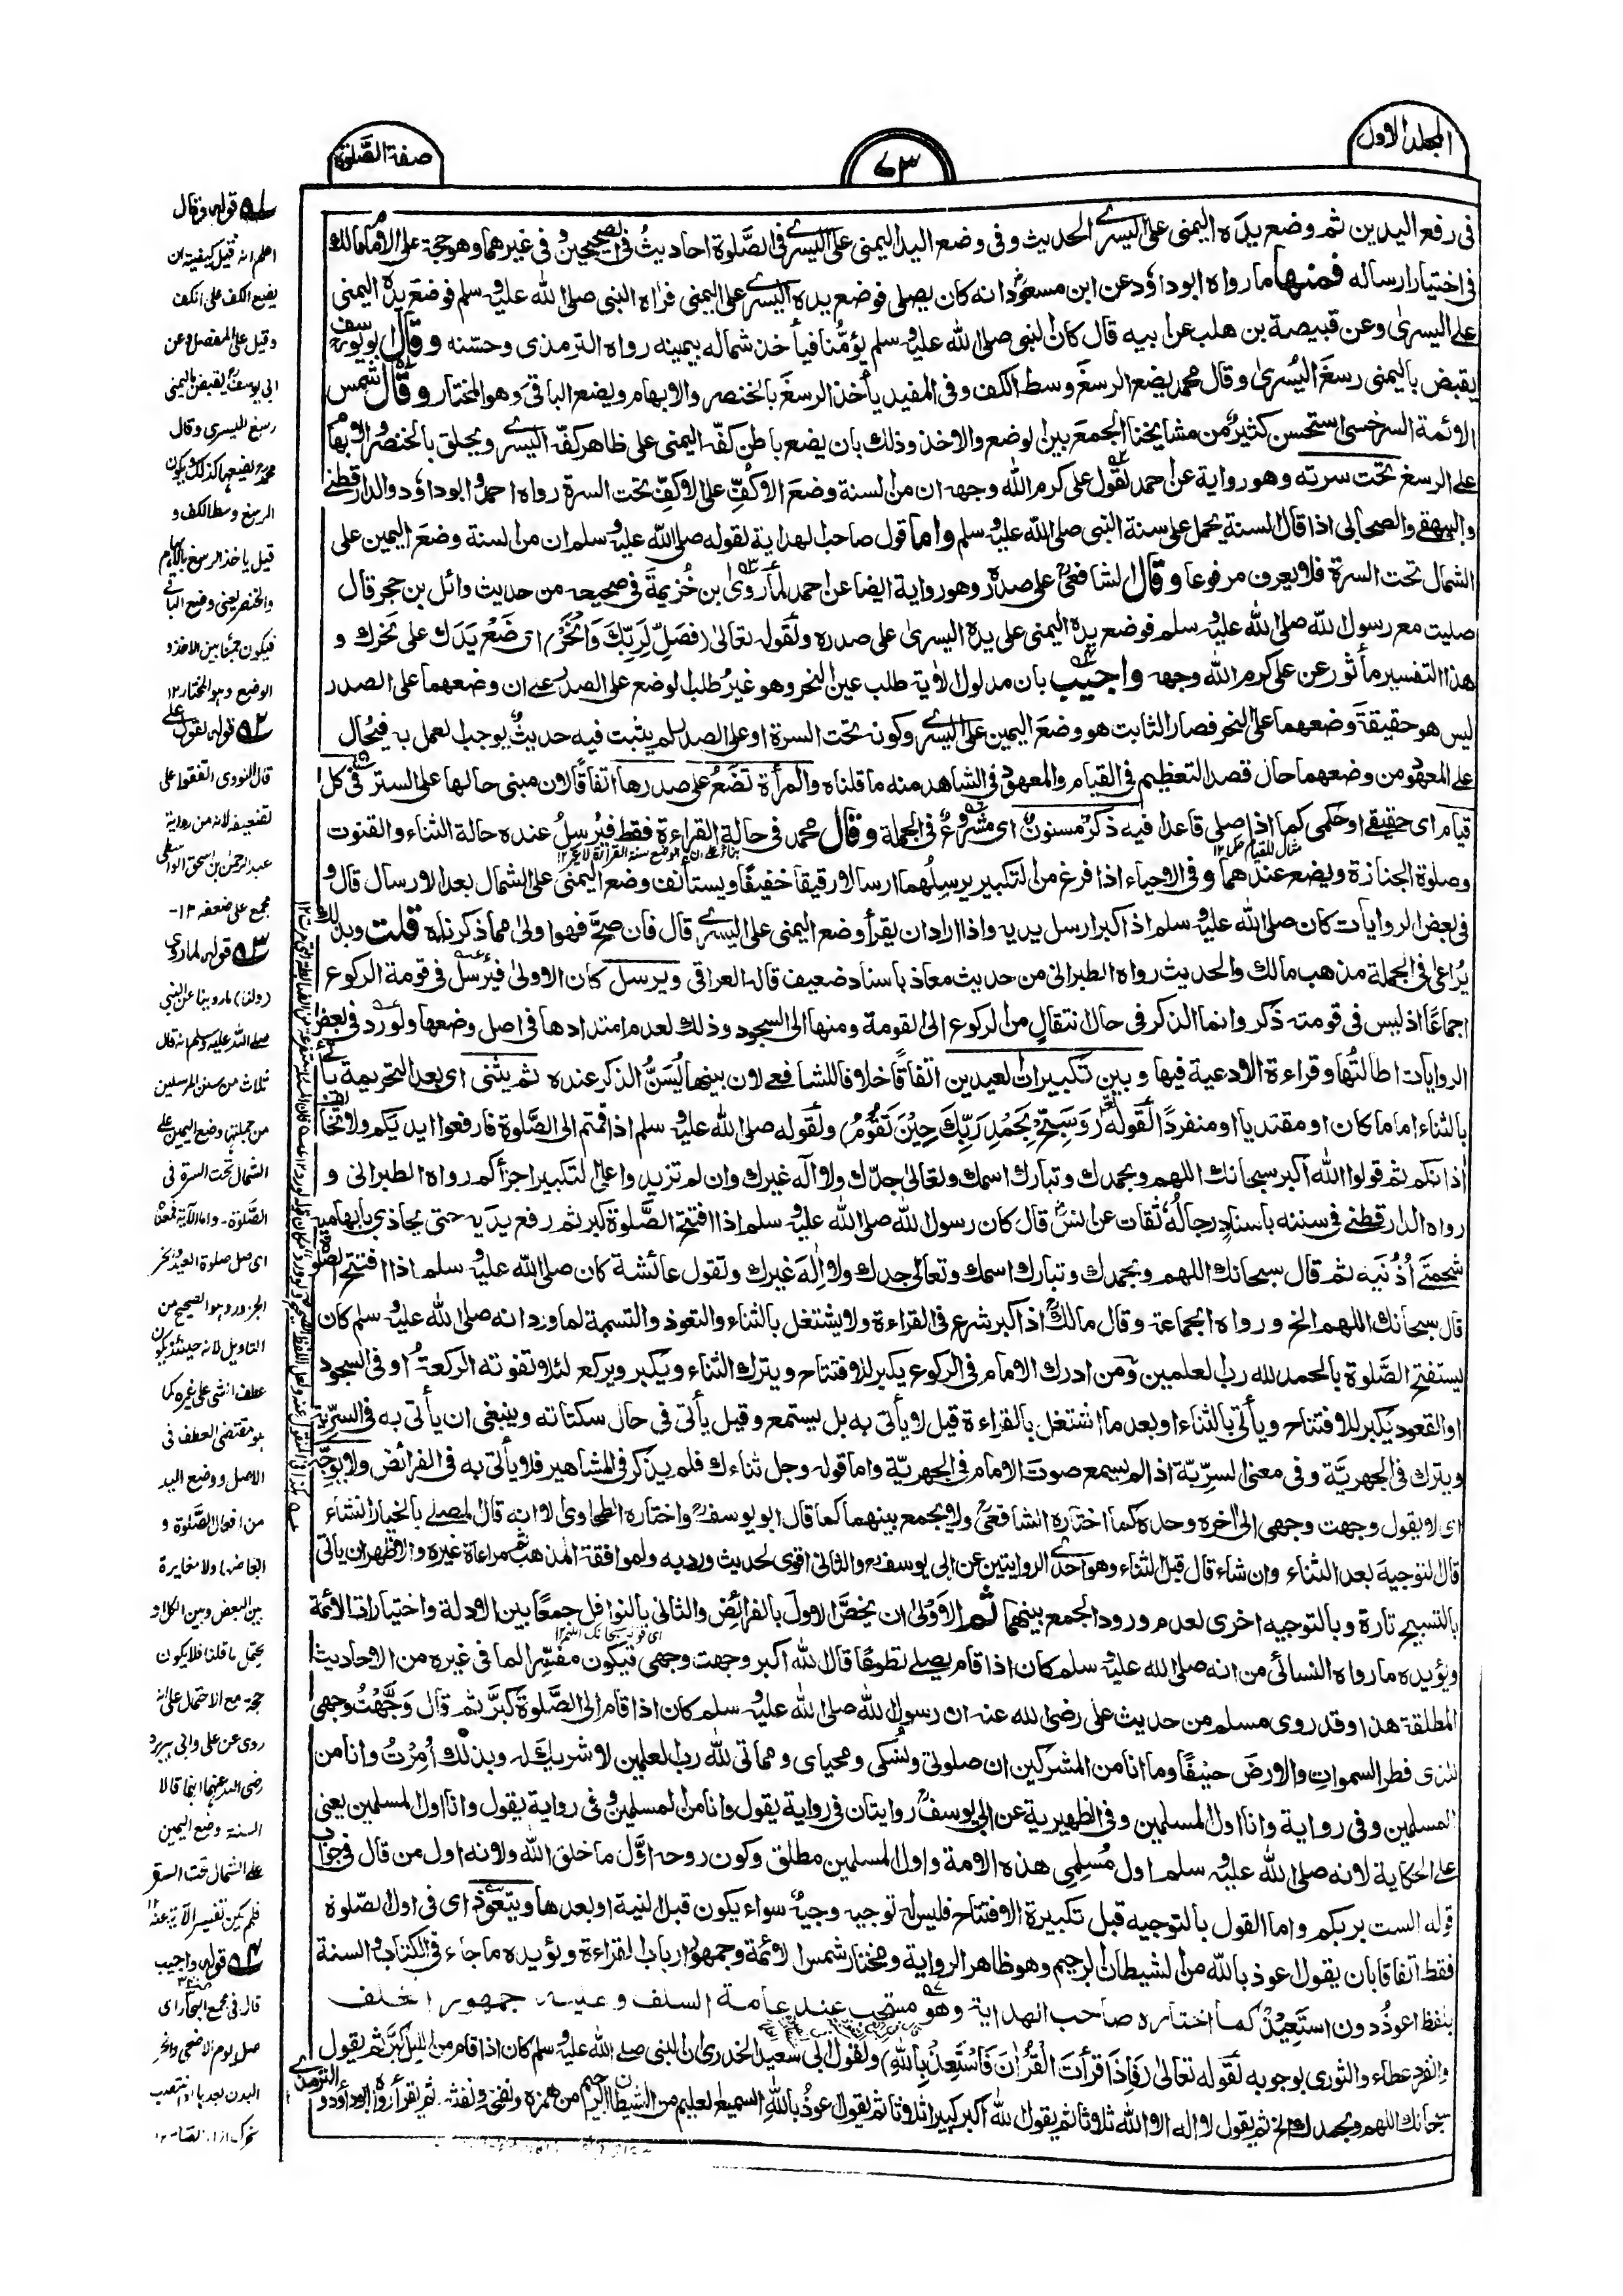 المجلد الاول
٧٣
صفة الصّلوة
فى رفع اليدين ثم وضع يدَه اليمنى على اليسرے الحديث وفى وضع اليد اليمنى على اليسرے فى الصَّلوة احاديثُ فى الصحيحين و فى غيرهما وهو حجة على الامام مالك
فى اختيار ارساله فمنها ما رواه ابو داوٗد عن ابن مسعودؓ انه كان يصلى فوضع يده اليسرے على اليمنى فرٰاه النبى صلى الله عليه وسلم فوضع يده اليمنى
على اليسرىٰ وعن قبيصة بن هلب عن ابيه قال كان النبى صلى الله عليه وسلم يؤمُّنا فيأخذ شماله بيمينه رواه الترمذى وحسّنه وقال ابو يوسف
يقبض باليمنى رسغَ اليُسرىٰ وقال محمد يضع الرسغَ وسط الكف وفى المفيد يأخذ الرسغَ بالخنصر والابهام ويضع الباقىَ وهو المختار وقال شمس
الائمة السرخسى استحسن كثيرٌ من مشايخنا الجمعَ بين الوضع والاخذ وذلك بان يضع باطن كفّه اليمنى على ظاهر كفّه اليسرے ويحلق بالخنصر والابهام
على الرسغ تحت سرته وهو رواية عن احمد لقول على كرم الله وجهه ان من السنة وضعَ الاكفّ على الاكفّ تحت السرة رواه احمد و ابو داوٗد والدارقطنے
والبيهقے والصحابى اذا قال السنة يحمل على سنة النبى صلى الله عليه وسلم واما قول صاحب الهداية لقوله صلى الله عليه وسلم ان من السنة وضعَ اليمين على
الشمال تحت السرة فلا يعرف مرفوعا وقال الشافعىؒ على صدره وهو رواية ايضا عن احمد لما روىٰ ابن خُزيمةَ فى صحيحه من حديث وائل بن حجر قال
صليت مع رسول الله صلى الله عليه وسلم فوضع يده اليمنى على يده اليسرىٰ على صدره ولقوله تعالىٰ (فَصَلِّ لِرَبِّكَ وَانْحَرْ) اى ضَعْ يَدَك على نَحرك و
هذا التفسير مأثور عن على كرم الله وجهه واجيب بان مدلول الاٰية طلب عين النحر وهو غيرُ طلب الوضع على الصدر على ان وضعهما على الصدر
ليس هو حقيقةَ وضعهما على النحر فصار الثابت هو وضعَ اليمين على اليسرے وكونه تحت السرة او على الصدر لم يثبت فيه حديثٌ يوجب العمل به فيُحال
على المعهود من وضعهما حال قصد التعظيم فى القيام والمعهود فى الشاهد منه ما قلناه والمرأة تضَعُ على صدرها اتفاقًا لان مبنى حالها على الستر فى كل
قيام اى حقيقے او حكمى كما اذا صلى قاعدا فيه ذكرٌ مسنونٌ اى مشروعٌ فى الجملة وقال محمد فى حالة القراءة فقط فيُرسلُ عنده حالة الثناء والقنوت
وصلوة الجنازة ويضع عندهما وفى الاحياء اذا فرغ من التكبير يرسلهما ارسالا رقيقا خفيفًا ويستانف وضع اليمنى على الشمال بعد الارسال قال و
فى بعض الروايات كان صلى الله عليه وسلم اذ اكبر ارسل يديه واذا اراد ان يقرأ وضع اليمنى على اليسرے قال فان صحَّ فهوا ولىٰ مما ذكرناه قلت وبذلك
يُراعىٰ فى الجملة مذهب مالك والحديث رواه الطبرانى من حديث معاذ باسناد ضعيف قاله العراقى ويرسل كان الاولىٰ فيرسلُ فى قومة الركوع
اجماعًا اذ ليس فى قومته ذكر وانما الذكر فى حال انتقالٍ من الركوع الى القومة ومنها الى السجود وذلك لعدم امتدادها فى اصل وضعها ولو ورد فى بعض
الروايات اطالتُها وقراءة الادعية فيها وبين تكبيرات العيدين اتفاقًا خلافا للشافعے لان بينها يُسَنُّ الذكر عنده ثم يثنى اى بعد التحريمة يأتى
بالثناء اماما كان او مقتديا او منفردًا لقوله (وَسَبِّحْ بِحَمْدِ رَبِّكَ حِيْنَ تَقُوْمُ) ولقوله صلى الله عليه وسلم اذا قمتم الى الصَّلوة فارفعوا ايديكم ولا تخالف
اٰذانكم ثم قولوا الله اكبر سبحانك اللهم وبحمدك وتبارك اسمك وتعالىٰ جدّك ولا آله غيرك وان لم تزيدوا على التكبير اجزأكم رواه الطبرانى و
رواه الدارقطنے فى سننه باسنادٍ رجالُهٗ ثقات عن انسؓ قال كان رسول الله صلى الله عليه وسلم اذا افتتح الصَّلوة كبر ثم رفع يديه حتى يحاذى بابهاميه
شحمتَے اُذُنَيه ثم قال سبحانك اللهم وبحمدك وتبارك اسمك وتعالىٰ جدك ولا اِلٰهَ غيرك ولقول عائشة كان صلى الله عليه وسلم اذا افتتح الصلوة
قال سبحانك اللهم الخ ورواه الجماعة وقال مالكؒ اذ اكبر شرع فى القراءة ولا يشتغل بالثناء والتعوذ والتسمية لما ورد انه صلى الله عليه وسلم كان
يستفتح الصَّلوة بالحمد لله رب العلمين ومن ادرك الامام فى الركوع يكبر للافتتاح ويترك الثناء ويكبر ويركع لئلا تفوته الركعةُ او فى السجود
او القعود يكبر للافتتاح ويأتى بالثناء او بعد ما اشتغل بالقراءة قيل لا يأتى به بل يستمع وقيل يأتى فى حال سكتاته وينبغى ان يأتى به فى السرّية
ويترك فى الجهريّة وفى معنى السرّيّة اذا لم يسمع صوتَ الامام فى الجهريّة واما قوله وجل ثناءك فلم يذكر فى المشاهير فلا يأتى به فى الفرائض ولا يوجّه
اى لا يقول وجهت وجهى الى اٰخره وحدَه كما اختاره الشافعىؒ ولا يجمع بينهما كما قال ابو يوسفؒ واختاره الطحاوى لا انه قال المصلے بالخيار ان شاء
قال التوجيه بعد الثناء وان شاء قال قبل الثناء وهو احدے الروايتين عن ابى يوسفؒ والثانى اقوى لحديث ورد به ولموافقة المذهب مراعاة غيره والاظهر ان ياتى
بالتسبيح تارة وبالتوجيه اخرى لعدم ورود الجمع بينهما ثم الاَوْلىٰ ان يخصَّ الاولَ بالفرائض والثانى بالنوافل جمعًا بين الادلة واختيارات الائمة
ويؤيده ما رواه النسائى من انه صلى الله عليه وسلم كان اذا قام يصلے تطوعًا قال الله اكبر وجهت وجهى فيكون مفسّرا لما فى غيره من الاحاديث
المطلقة هذا وقد روى مسلم من حديث على رضى الله عنه ان رسول الله صلى الله عليه وسلم كان اذا قام الى الصَّلوة كبَّر ثم قال وَجَّهْتُ وجهى
للذى فطر السموات والارضَ حنيفًا وما انا من المشركين ان صلوتى ونُسُكى ومحياى ومماتى لله رب العلمين لا شريك له وبذلك اُمِرْتُ وانا من
المسلمين وفى رواية وانا اول المسلمين وفى الظهيرية عن ابى يوسفؒ روايتان فى رواية يقول وانا من المسلمين وفى رواية يقول وانا اول المسلمين يعنى
على الحكاية لانه صلى الله عليه وسلم اول مُسلِمِى هذه الامة واول المسلمين مطلق وكون روحه اوَّل ما خلق الله ولانه اول من قال فى جواب
قوله الست بربكم واما القول بالتوجيه قبل تكبيرة الافتتاح فليس له توجيه وجيهٌ سواء يكون قبل النية او بعدها ويتعوّذ اى فى اول الصّلوة
فقط اتفاقا بان يقول اعوذ بالله من الشيطان الرجيم وهو ظاهر الرواية ومختار شمس الائمة وجمهور ارباب القراءة ويؤيده ما جاء فى الكتاب والسنة
بلفظ اعوذُ دون استَعِيْذُ كما اختاره صاحب الهداية وهو مستحب عند عامة السلف وعليه جمهور الخلف
والفرد عطاء والثورى بوجوبه لقوله تعالىٰ (فَاِذَا قَرَأتَ الْقُرْاٰنَ فَاسْتَعِذْ بِاللهِ) ولقول ابى سعيد الخدرى ان النبى صلے الله عليه وسلم كان اذا قام من الليل كبَّر ثم يقول
سبحانك اللهم وبحمدك الخ ثم يقول لا اله الا الله ثلاثا ثم يقول الله اكبر كبيرا ثلاثا ثم يقول اعوذُ باللهِ السميع العليم من الشيطان الرجيم من همزه ونفخه ونفثه ثم يقرأ رواه ابو داوٗد و
الترمذے
مثال للقيام حكمى ١٢
اى قوله سبحانك اللهم ١٢
قوله وقال
اعلم انه قيل كيفيته ان
يضع الكف على الكف
وقيل على المفصل وعن
ابى يوسفؒ يقبض باليمنى
رسغ اليسرى وقال
محمدؒ يضعها كذلك ويكون
الرسغ وسط الكف و
قيل ياخذ الرسغ بالابهام
والخنصر يعنى ويضع الباقے
فيكون جمعًا بين الاخذ و
الوضع وهو المختار ١٢
قوله لقول على
قال النووى اتفقوا على
تضعيفه لانه من رواية
عبد الرحمٰن بن اسحق الواسطى
مجمع على ضعفه ١٢-
قوله لما روى
(ولنا) ما روينا عن النبى
صلے الله عليه وسلم انه قال
ثلاث من سنن المرسلين
من جملتها وضع اليمين على
الشمال تحت السرة فى
الصَّلوة - واما الآية فمعناه
اى صل صلوة العيد وانحر
الجزور وهو الصحيح من
التاويل لانه حينئذ يكون
عطف الشى على غيره كما
هو مقتضى العطف فى
الاصل ووضع اليد
من افعال الصَّلوة و
ابعاضها ولا مغايرة
بين البعض وبين الكل او
يحتمل ما قلنا فلا يكون
حجة مع الاحتمال على انه
روى عن على وابى هريرة
رضى الله عنهما انهما قالا
السنة وضع اليمين
على الشمال تحت السرة
فلم يكن تفسير الآية عنه ١٢
قوله واجيب
قال فى مجمع البحار اى
صل يوم الاضحى وانحر